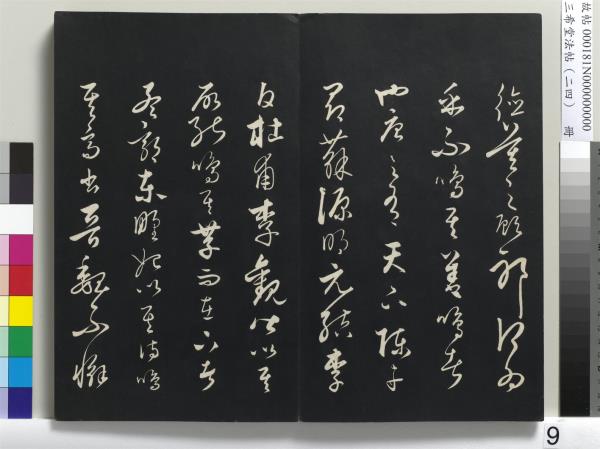 故帖 000181N000000000
三希堂法帖（二四） 冊
德莫之顧邪何為
乎不鳴其善鳴者
也唐之有天下陳子
昂蘇源明元結李
白杜甫李觀皆以其
所能鳴其而在下者
孟郊東野始以其詩鳴
其高出晉魏不懈
9